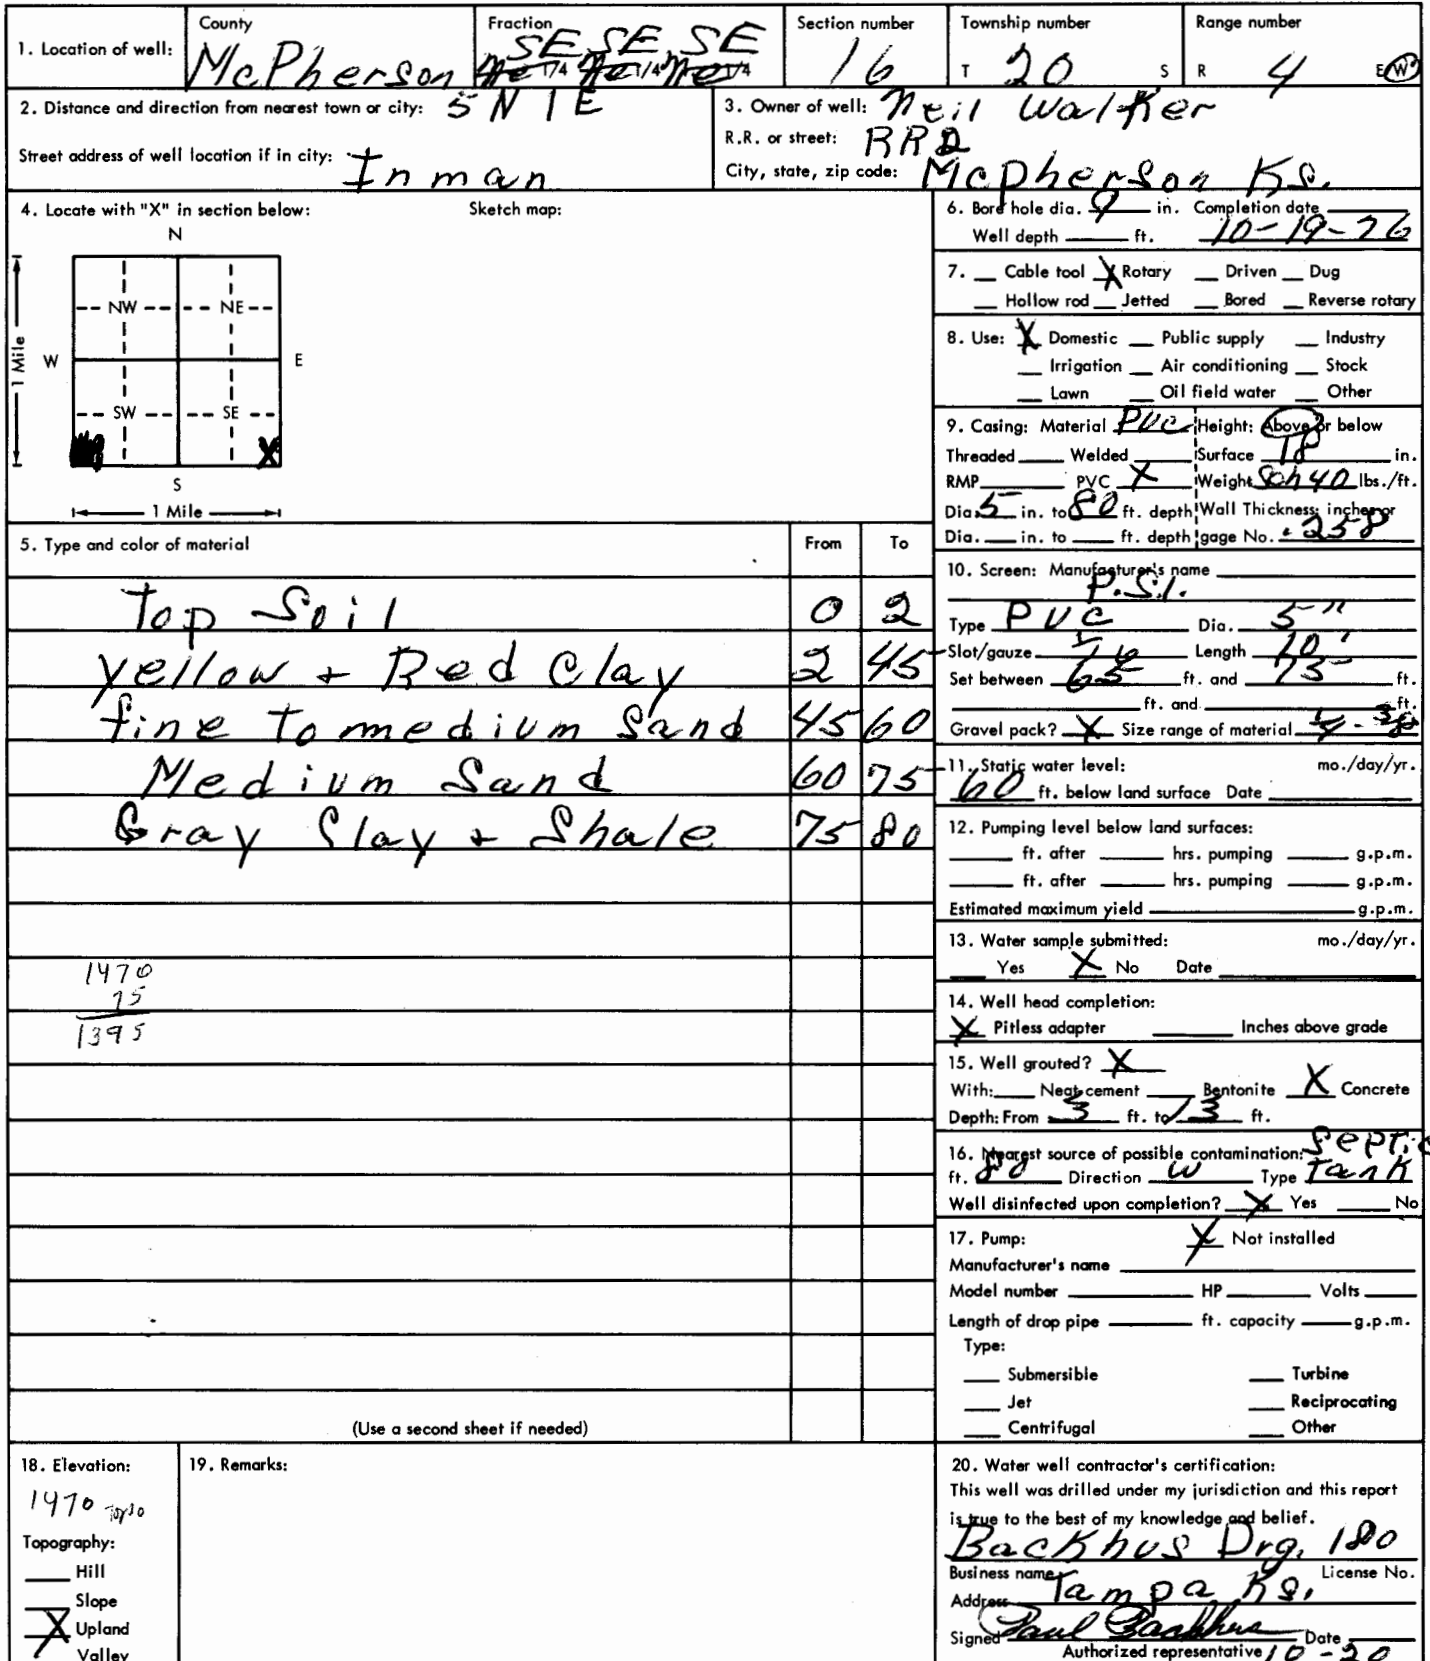 1. Location of well: County McPherson Fraction SE SE SE 1/4 1/4 1/4 Section number 16 Township number T 20 S Range number R 4 E W
2. Distance and direction from nearest town or city: 5 N 1 E
Street address of well location if in city: Inman
3. Owner of well: Neil Walker
R.R. or street: RR2
City, state, zip code: McPherson Ks.
4. Locate with "X" in section below: Sketch map:
N
NW NE
W E
SW SE
X
S
1 Mile
1 Mile
5. Type and color of material From To
Top Soil 0 2
yellow + Red Clay 2 45
fine to medium Sand 45 60
Medium Sand 60 75
Gray Clay + Shale 75 80
1470
75
1395
(Use a second sheet if needed)
6. Bore hole dia. 9 in. Completion date
Well depth ft. 10-19-76
7. Cable tool X Rotary Driven Dug
Hollow rod Jetted Bored Reverse rotary
8. Use: X Domestic Public supply Industry
Irrigation Air conditioning Stock
Lawn Oil field water Other
9. Casing: Material PVC Height: Above or below
Threaded Welded Surface 18 in.
RMP PVC X Weight Sch 40 lbs./ft.
Dia. 5 in. to 80 ft. depth Wall Thickness: inches or
Dia. in. to ft. depth gage No. .258
10. Screen: Manufacturer's name
P.S.I.
Type PVC Dia. 5"
Slot/gauze 1/16 Length 10'
Set between 65 ft. and 75 ft.
ft. and ft.
Gravel pack? X Size range of material
11. Static water level: mo./day/yr.
60 ft. below land surface Date
12. Pumping level below land surfaces:
ft. after hrs. pumping g.p.m.
ft. after hrs. pumping g.p.m.
Estimated maximum yield g.p.m.
13. Water sample submitted: mo./day/yr.
Yes X No Date
14. Well head completion:
X Pitless adapter Inches above grade
15. Well grouted? X
With: Neat cement Bentonite X Concrete
Depth: From 3 ft. to 13 ft.
16. Nearest source of possible contamination: Septic
ft. 80 Direction W Type Tank
Well disinfected upon completion? X Yes No
17. Pump: X Not installed
Manufacturer's name
Model number HP Volts
Length of drop pipe ft. capacity g.p.m.
Type:
Submersible Turbine
Jet Reciprocating
Centrifugal Other
18. Elevation:
1470 Topo
Topography:
Hill
Slope
X Upland
Valley
19. Remarks:
20. Water well contractor's certification:
This well was drilled under my jurisdiction and this report
is true to the best of my knowledge and belief.
Backhus Drg. 180
Business name License No.
Address Tampa Ks.
Signed Paul Backhus Date
Authorized representative 10-20